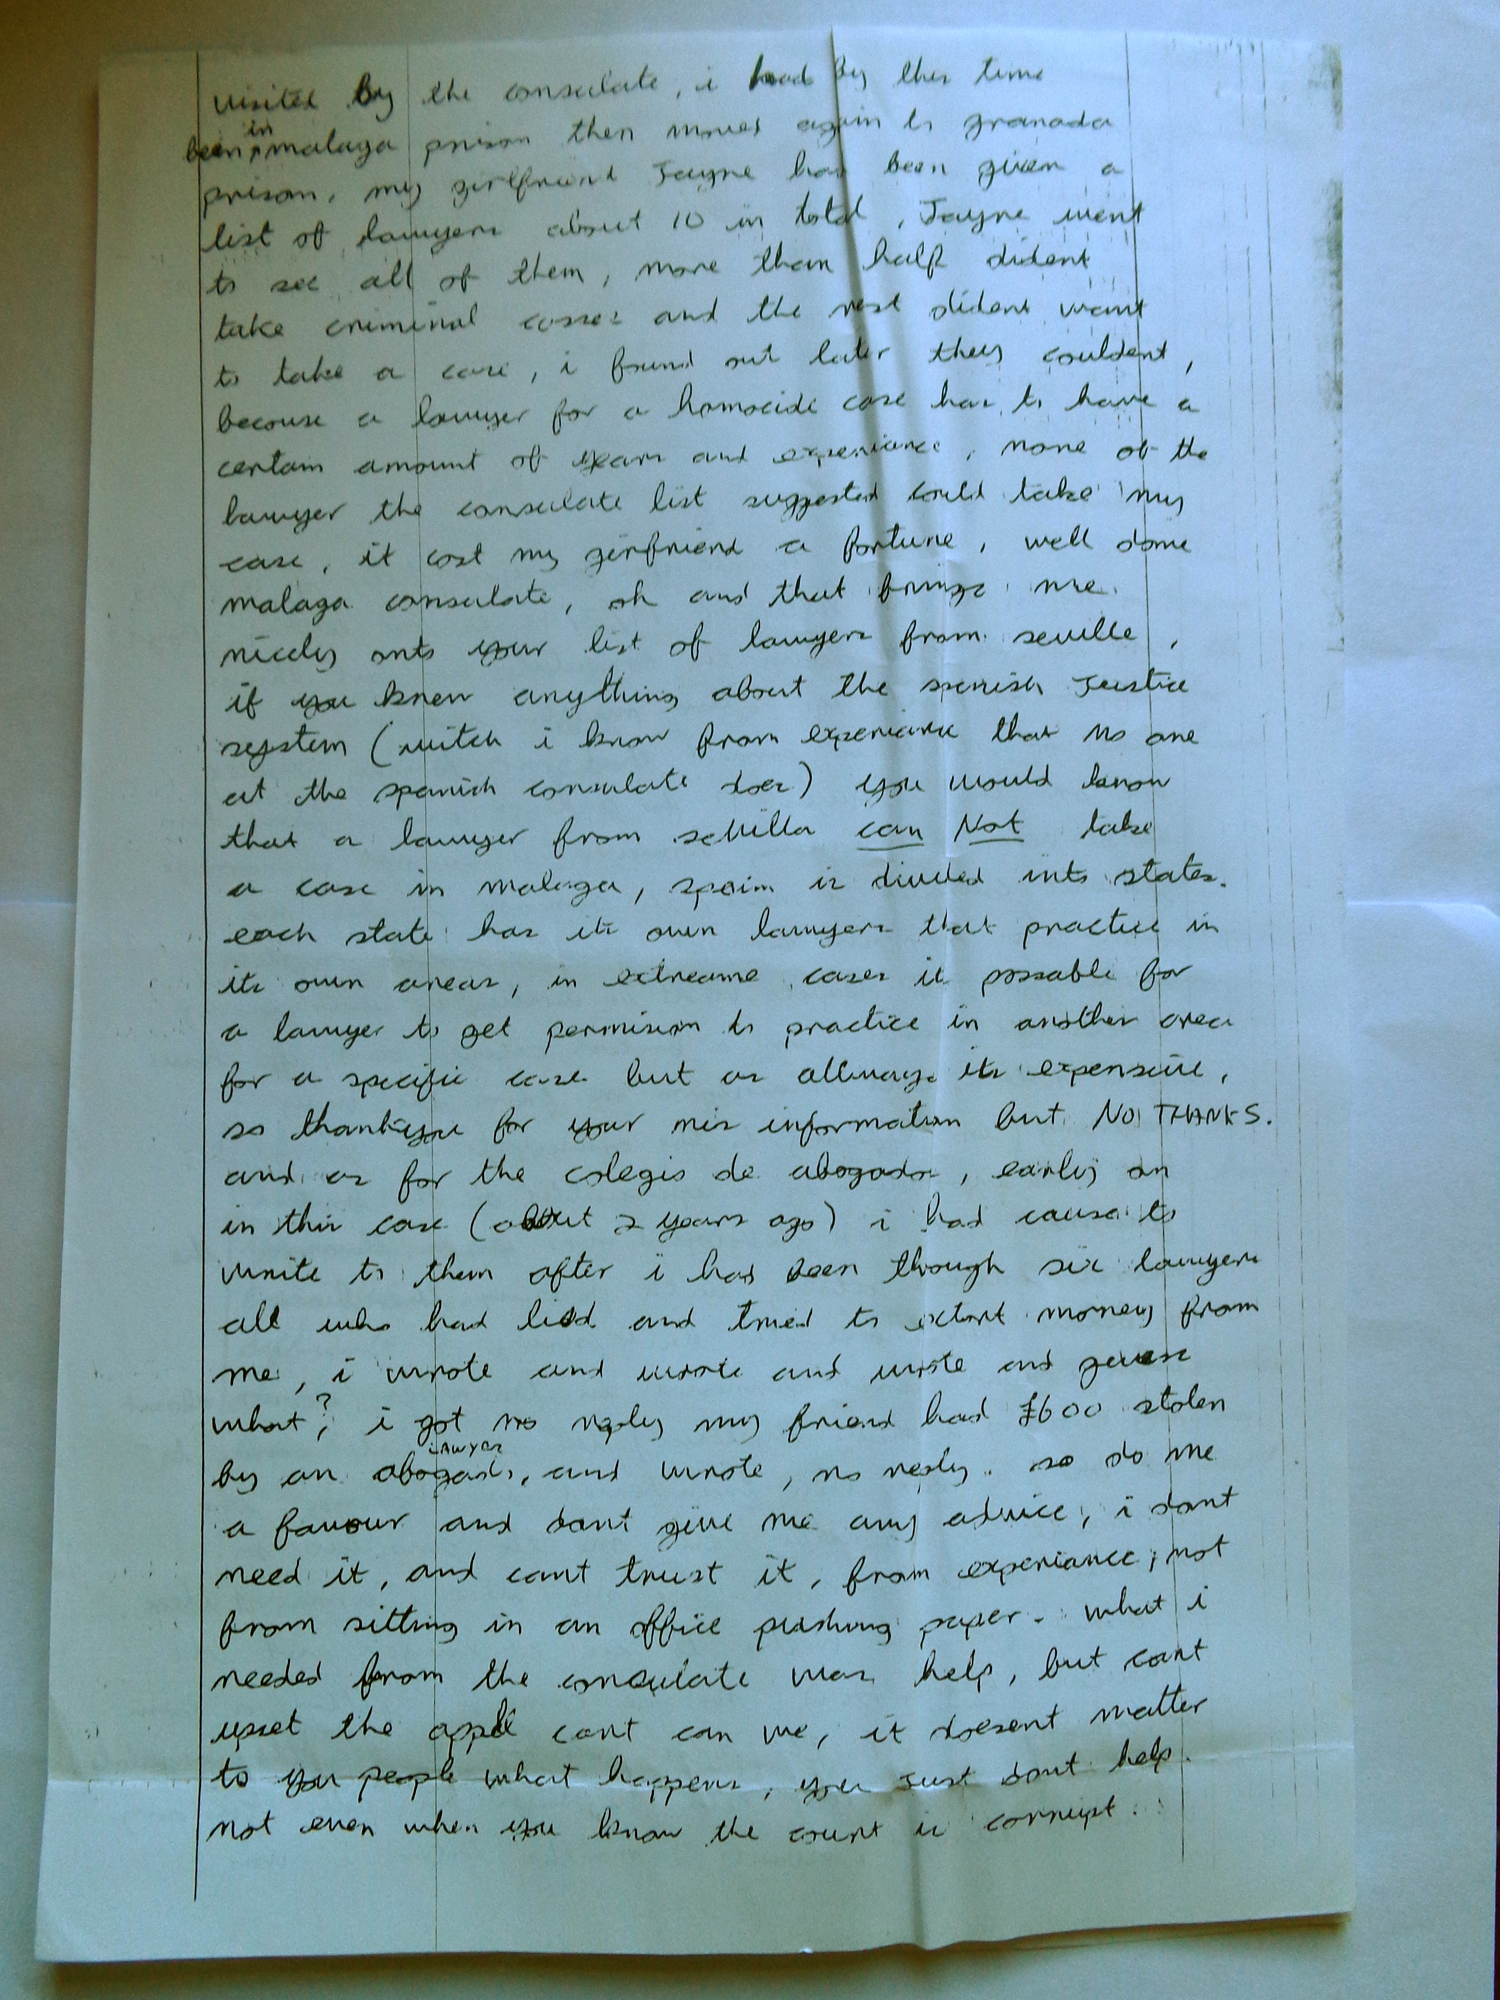 visited By the consulate, i had By this time
been in malaga prison then moved again to granada
prison, my girlfriend Jayne had been given a
list of lawyers about 10 in total, Jayne went
to see all of them, more than half dident
take criminal casses and the rest dident want
to take a case, i found out later they couldent,
becouse a lawyer for a homocide case has to have a
certain amount of years and experiance, none of the
lawyer the consulate list suggested could take my
case, it cost my girfriend a fortune, well done
malaga consulate, oh and that brings me
nicely onto your list of lawyers from seville,
if you knew anything about the spanish Justice
system (witch i know from experiance that no one
at the spanish consulate does) you would know
that a lawyer from sevilla can Not take
a case in malaga, spain is divided into states.
each state has its own lawyers that practice in
its own areas, in extreame cases it possable for
a lawyer to get permision to practice in another area
for a specific case but as allways its expensive,
so thankyou for your mis information but NO THANKS.
and as for the colegio de abogados, early on
in this case (about 2 years ago) i had cause to
write to them after i had been though six lawyers
all who had lied and tried to extort money from
me, i wrote and wrote and wrote and guess
what? i got no reply my friend had £600 stolen
by an abogado, LAWYER and wrote, no reply. so do me
a favour and dont give me any advice, i dont
need it, and cant trust it, from experiance, not
from sitting in an office pushing paper. what i
needed from the consulate was help, but cant
upset the appl cart can we, it doesent matter
to you people what happens, you Just dont help.
not even when you know the court is corrupt.